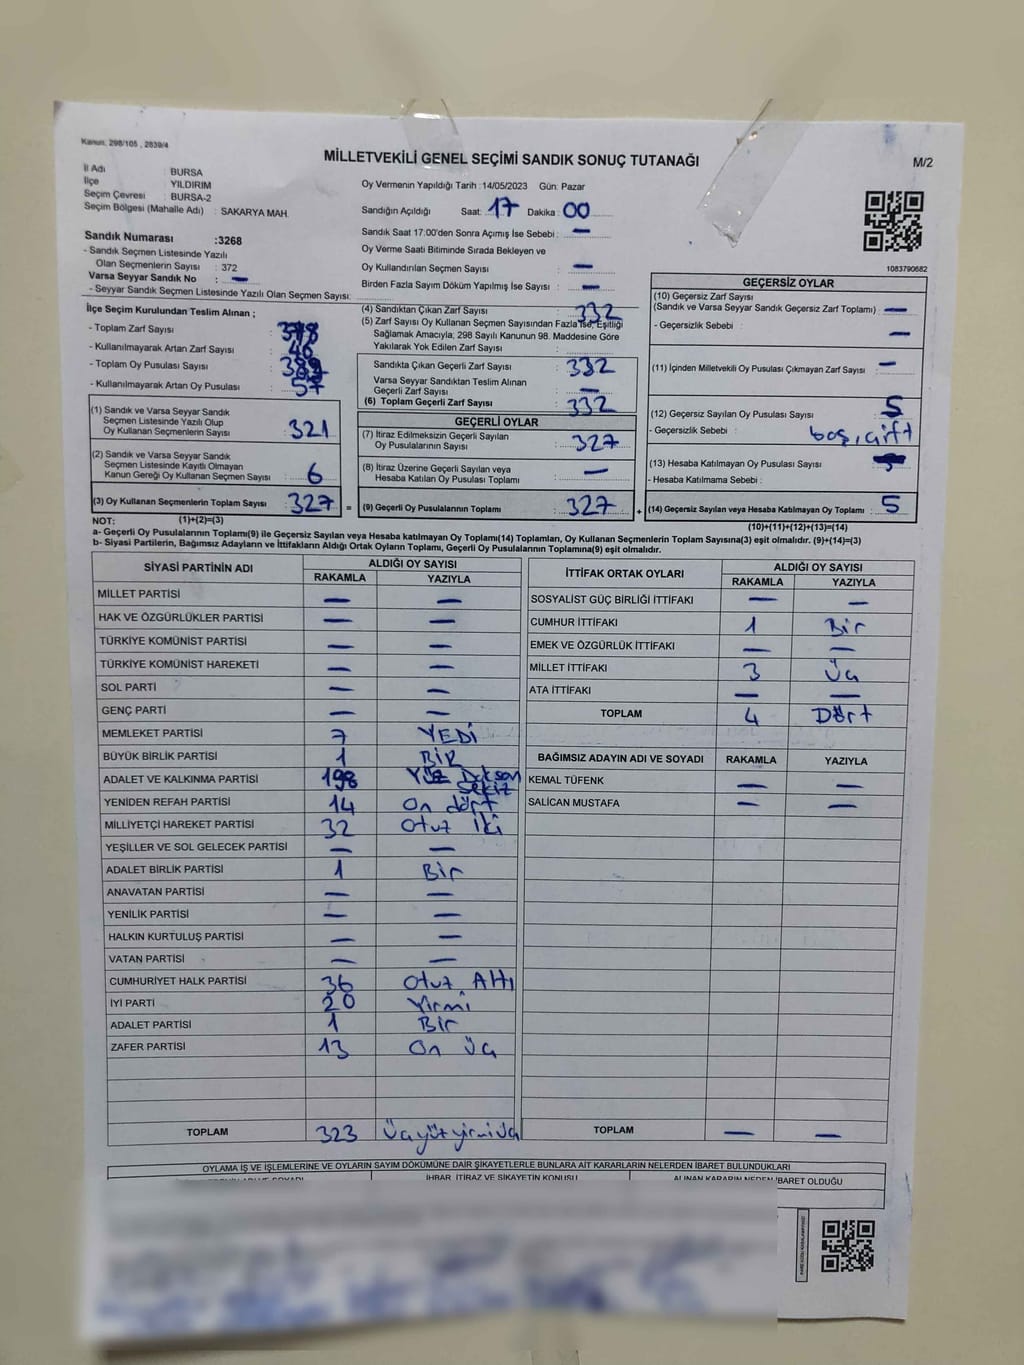 Kanun, 298/105 , 2839/4
MİLLETVEKİLİ GENEL SEÇİMİ SANDIK SONUÇ TUTANAĞI
M/2
İl Adı : BURSA
İlçe YILDIRIM
Seçim Çevresi : BURSA-2
Seçim Bölgesi (Mahalle Adı) : SAKARYA MAH.
Oy Vermenin Yapıldığı Tarih :14/05/2023 Gün: Pazar
Sandığın Açıldığı Saat: 17 Dakika: 00
Sandık Saat 17:00'den Sonra Açımış İse Sebebi : —
Oy Verme Saati Bitiminde Sırada Bekleyen ve
Oy Kullandırılan Seçmen Sayısı : —
Birden Fazla Sayım Döküm Yapılmış İse Sayısı : —
Sandık Numarası :3268
- Sandık Seçmen Listesinde Yazılı
Olan Seçmenlerin Sayısı : 372
Varsa Seyyar Sandık No : —
- Seyyar Sandık Seçmen Listesinde Yazılı Olan Seçmen Sayısı:
1083790682
İlçe Seçim Kurulundan Teslim Alınan ;
- Toplam Zarf Sayısı : 378
- Kullanılmayarak Artan Zarf Sayısı : 46
- Toplam Oy Pusulası Sayısı :
- Kullanılmayarak Artan Oy Pusulası : 57
(1) Sandık ve Varsa Seyyar Sandık
Seçmen Listesinde Yazılı Olup
Oy Kullanan Seçmenlerin Sayısı : 321
(2) Sandık ve Varsa Seyyar Sandık
Seçmen Listesinde Kayıtlı Olmayan
Kanun Gereği Oy Kullanan Seçmen Sayısı : 6
(3) Oy Kullanan Seçmenlerin Toplam Sayısı : 327 =
(4) Sandıktan Çıkan Zarf Sayısı : 332
(5) Zarf Sayısı Oy Kullanan Seçmen Sayısından Fazla İse, Eşitliği
Sağlamak Amacıyla, 298 Sayılı Kanunun 98. Maddesine Göre
Yakılarak Yok Edilen Zarf Sayısı :
Sandıkta Çıkan Geçerli Zarf Sayısı : 332
Varsa Seyyar Sandıktan Teslim Alınan
Geçerli Zarf Sayısı : —
(6) Toplam Geçerli Zarf Sayısı : 332
GEÇERLİ OYLAR
(7) İtiraz Edilmeksizin Geçerli Sayılan
Oy Pusulalarının Sayısı : 327
(8) İtiraz Üzerine Geçerli Sayılan veya
Hesaba Katılan Oy Pusulası Toplamı : —
(9) Geçerli Oy Pusulalarının Toplamı : 327 +
GEÇERSİZ OYLAR
(10) Geçersiz Zarf Sayısı
(Sandık ve Varsa Seyyar Sandık Geçersiz Zarf Toplamı) : —
- Geçersizlik Sebebi : —
(11) İçinden Milletvekili Oy Pusulası Çıkmayan Zarf Sayısı : —
(12) Geçersiz Sayılan Oy Pusulası Sayısı : 5
- Geçersizlik Sebebi : boş, çift
(13) Hesaba Katılmayan Oy Pusulası Sayısı :
- Hesaba Katılmama Sebebi :
(14) Geçersiz Sayılan veya Hesaba Katılmayan Oy Toplamı : 5
NOT: (1)+(2)=(3)
(10)+(11)+(12)+(13)=(14)
a- Geçerli Oy Pusulalarının Toplamı(9) ile Geçersiz Sayılan veya Hesaba katılmayan Oy Toplamı(14) Toplamları, Oy Kullanan Seçmenlerin Toplam Sayısına(3) eşit olmalıdır. (9)+(14)=(3)
b- Siyasi Partilerin, Bağımsız Adayların ve İttifakların Aldığı Ortak Oyların Toplamı, Geçerli Oy Pusulalarının Toplamına(9) eşit olmalıdır.
SİYASİ PARTİNİN ADI ALDIĞI OY SAYISI
RAKAMLA YAZIYLA
MİLLET PARTİSİ — —
HAK VE ÖZGÜRLÜKLER PARTİSİ — —
TÜRKİYE KOMÜNİST PARTİSİ — —
TÜRKİYE KOMÜNİST HAREKETİ — —
SOL PARTİ — —
GENÇ PARTİ — —
MEMLEKET PARTİSİ 7 YEDİ
BÜYÜK BİRLİK PARTİSİ 1 BİR
ADALET VE KALKINMA PARTİSİ 198 Yüz Doksan sekiz
YENİDEN REFAH PARTİSİ 14 On dört
MİLLİYETÇİ HAREKET PARTİSİ 32 Otuz İki
YEŞİLLER VE SOL GELECEK PARTİSİ — —
ADALET BİRLİK PARTİSİ 1 Bir
ANAVATAN PARTİSİ — —
YENİLİK PARTİSİ — —
HALKIN KURTULUŞ PARTİSİ — —
VATAN PARTİSİ — —
CUMHURİYET HALK PARTİSİ 36 Otuz Altı
İYİ PARTİ 20 Yirmi
ADALET PARTİSİ 1 Bir
ZAFER PARTİSİ 13 On Üç
TOPLAM 323 Üçyüzyirmiüç
İTTİFAK ORTAK OYLARI ALDIĞI OY SAYISI
RAKAMLA YAZIYLA
SOSYALİST GÜÇ BİRLİĞİ İTTİFAKI — —
CUMHUR İTTİFAKI 1 Bir
EMEK VE ÖZGÜRLÜK İTTİFAKI — —
MİLLET İTTİFAKI 3 Üç
ATA İTTİFAKI — —
TOPLAM 4 Dört
BAĞIMSIZ ADAYIN ADI VE SOYADI RAKAMLA YAZIYLA
KEMAL TÜFENK — —
SALİCAN MUSTAFA — —
TOPLAM — —
OYLAMA İŞ VE İŞLEMLERİNE VE OYLARIN SAYIM DÖKÜMÜNE DAİR ŞİKAYETLERLE BUNLARA AİT KARARLARIN NELERDEN İBARET BULUNDUKLARI
İHBAR, İTİRAZ VE ŞİKAYETİN KONUSU ALINAN KARARIN NEDEN İBARET OLDUĞU